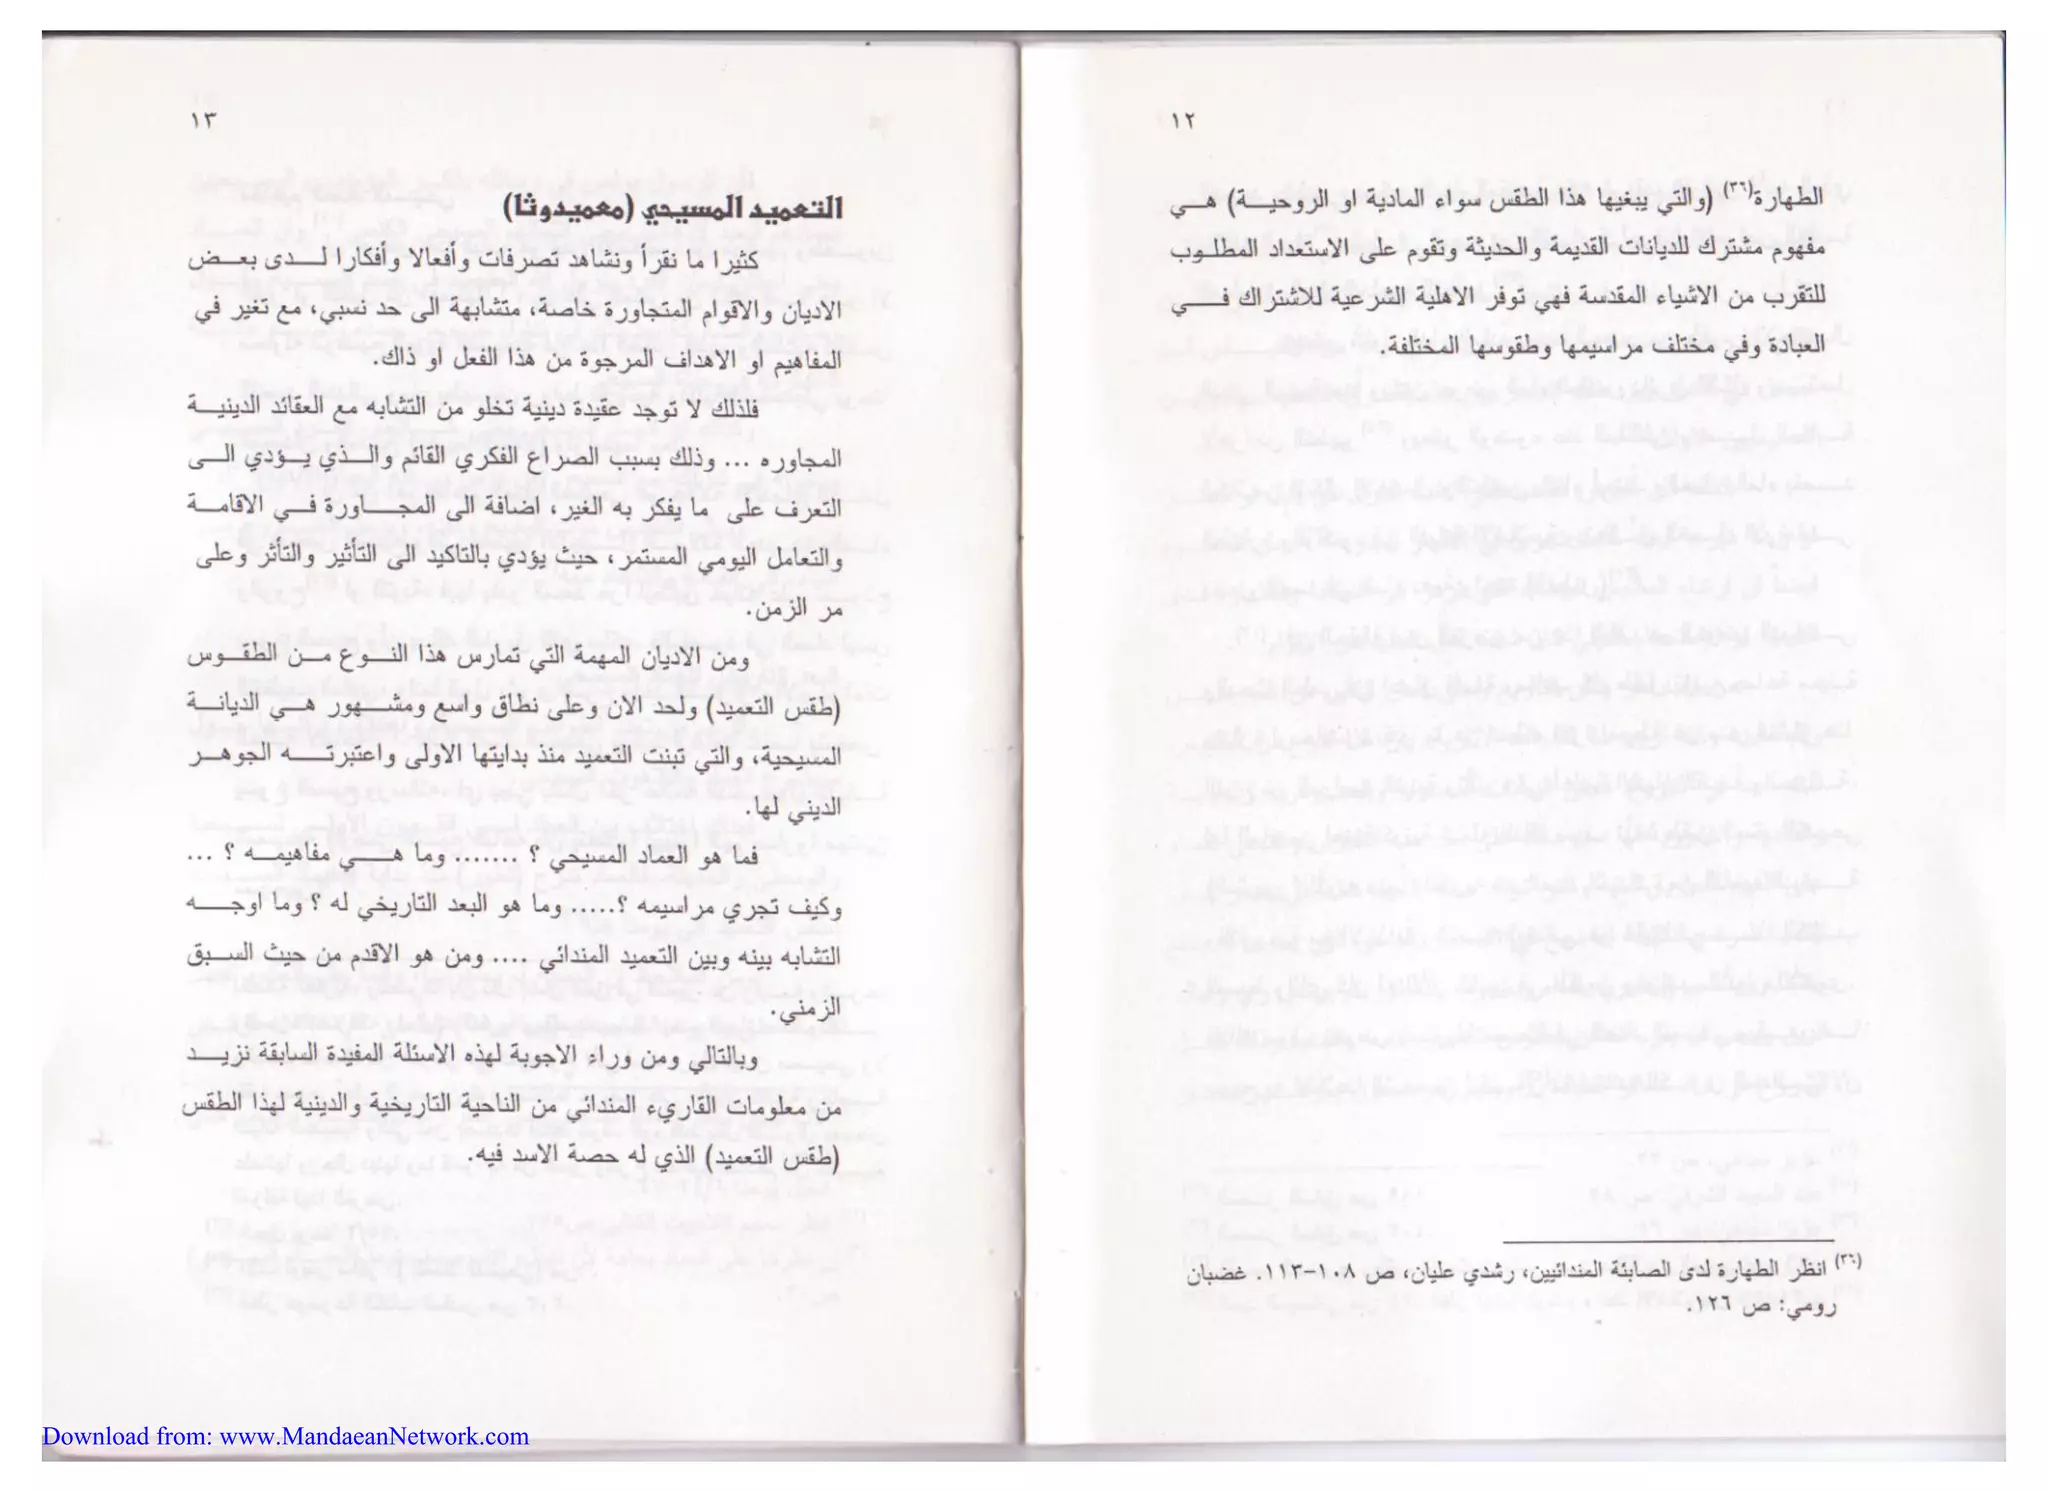 ١٢
الطهارة(٣٦) (والتي يبغيها هذا الطقس سواء المادية او الروحيــة) هــي
مفهوم مشترك للديانات القديمة والحديثة وتقوم على الاستعداد المطلـوب
للتقرب من الاشياء المقدسة فهي توفر الاهلية الشرعية للاشتراك فــــي
العبادة وفي مختلف مراسيمها وطقوسها المختلفة.
(٣٦) انظر الطهارة لدى الصابئة المندائيين، رشدي عليان، ص ١٠٨-١١٣. غضبان
رومي: ص ١٢٦.
١٣
التعميد المسيحي (معميدوثا)
كثيرا ما نقرأ ونشاهد تصرفات وأفعالا وأفكارا لــدى بعــض
الاديان والاقوام المتجاورة خاصة، متشابهة الى حد نسبي، مع تغير في
المفاهيم او الاهداف المرجوة من هذا الفعل او ذاك.
فلذلك لا توجد عقيدة دينية تخلو من التشابه مع العقائد الدينيــة
المجاوره ... وذلك بسبب الصراع الفكري القائم والــذي يــؤدي الــى
التعرف على ما يفكر به الغير، اضافة الى المجــاورة فــي الاقامــة
والتعامل اليومي المستمر، حيث يؤدي بالتاكيد الى التأثير والتأثر وعلى
مر الزمن.
ومن الاديان المهمة التي تمارس هذا النــوع مــن الطقــوس
(طقس التعميد) ولحد الان وعلى نطاق واسع ومشــهور هــي الديانــة
المسيحية، والتي تبنت التعميد منذ بدايتها الاولى واعتبرتــه الجوهــر
الديني لها.
فما هو العماد المسيحي ؟ ....... وما هــي مفاهيمــه ؟ ...
وكيف تجري مراسيمه ؟..... وما هو البعد التاريخي له ؟ وما اوجــه
التشابه بينه وبين التعميد المندائي .... ومن هو الاقدم من حيث الســبق
الزمني.
وبالتالي ومن وراء الاجوبة لهذه الاسئلة المفيدة السابقة نزيــد
من معلومات القاريء المندائي من الناحية التاريخية والدينية لهذا الطقس
(طقس التعميد) الذي له حصة الاسد فيه.
Download from: www.MandaeanNetwork.com